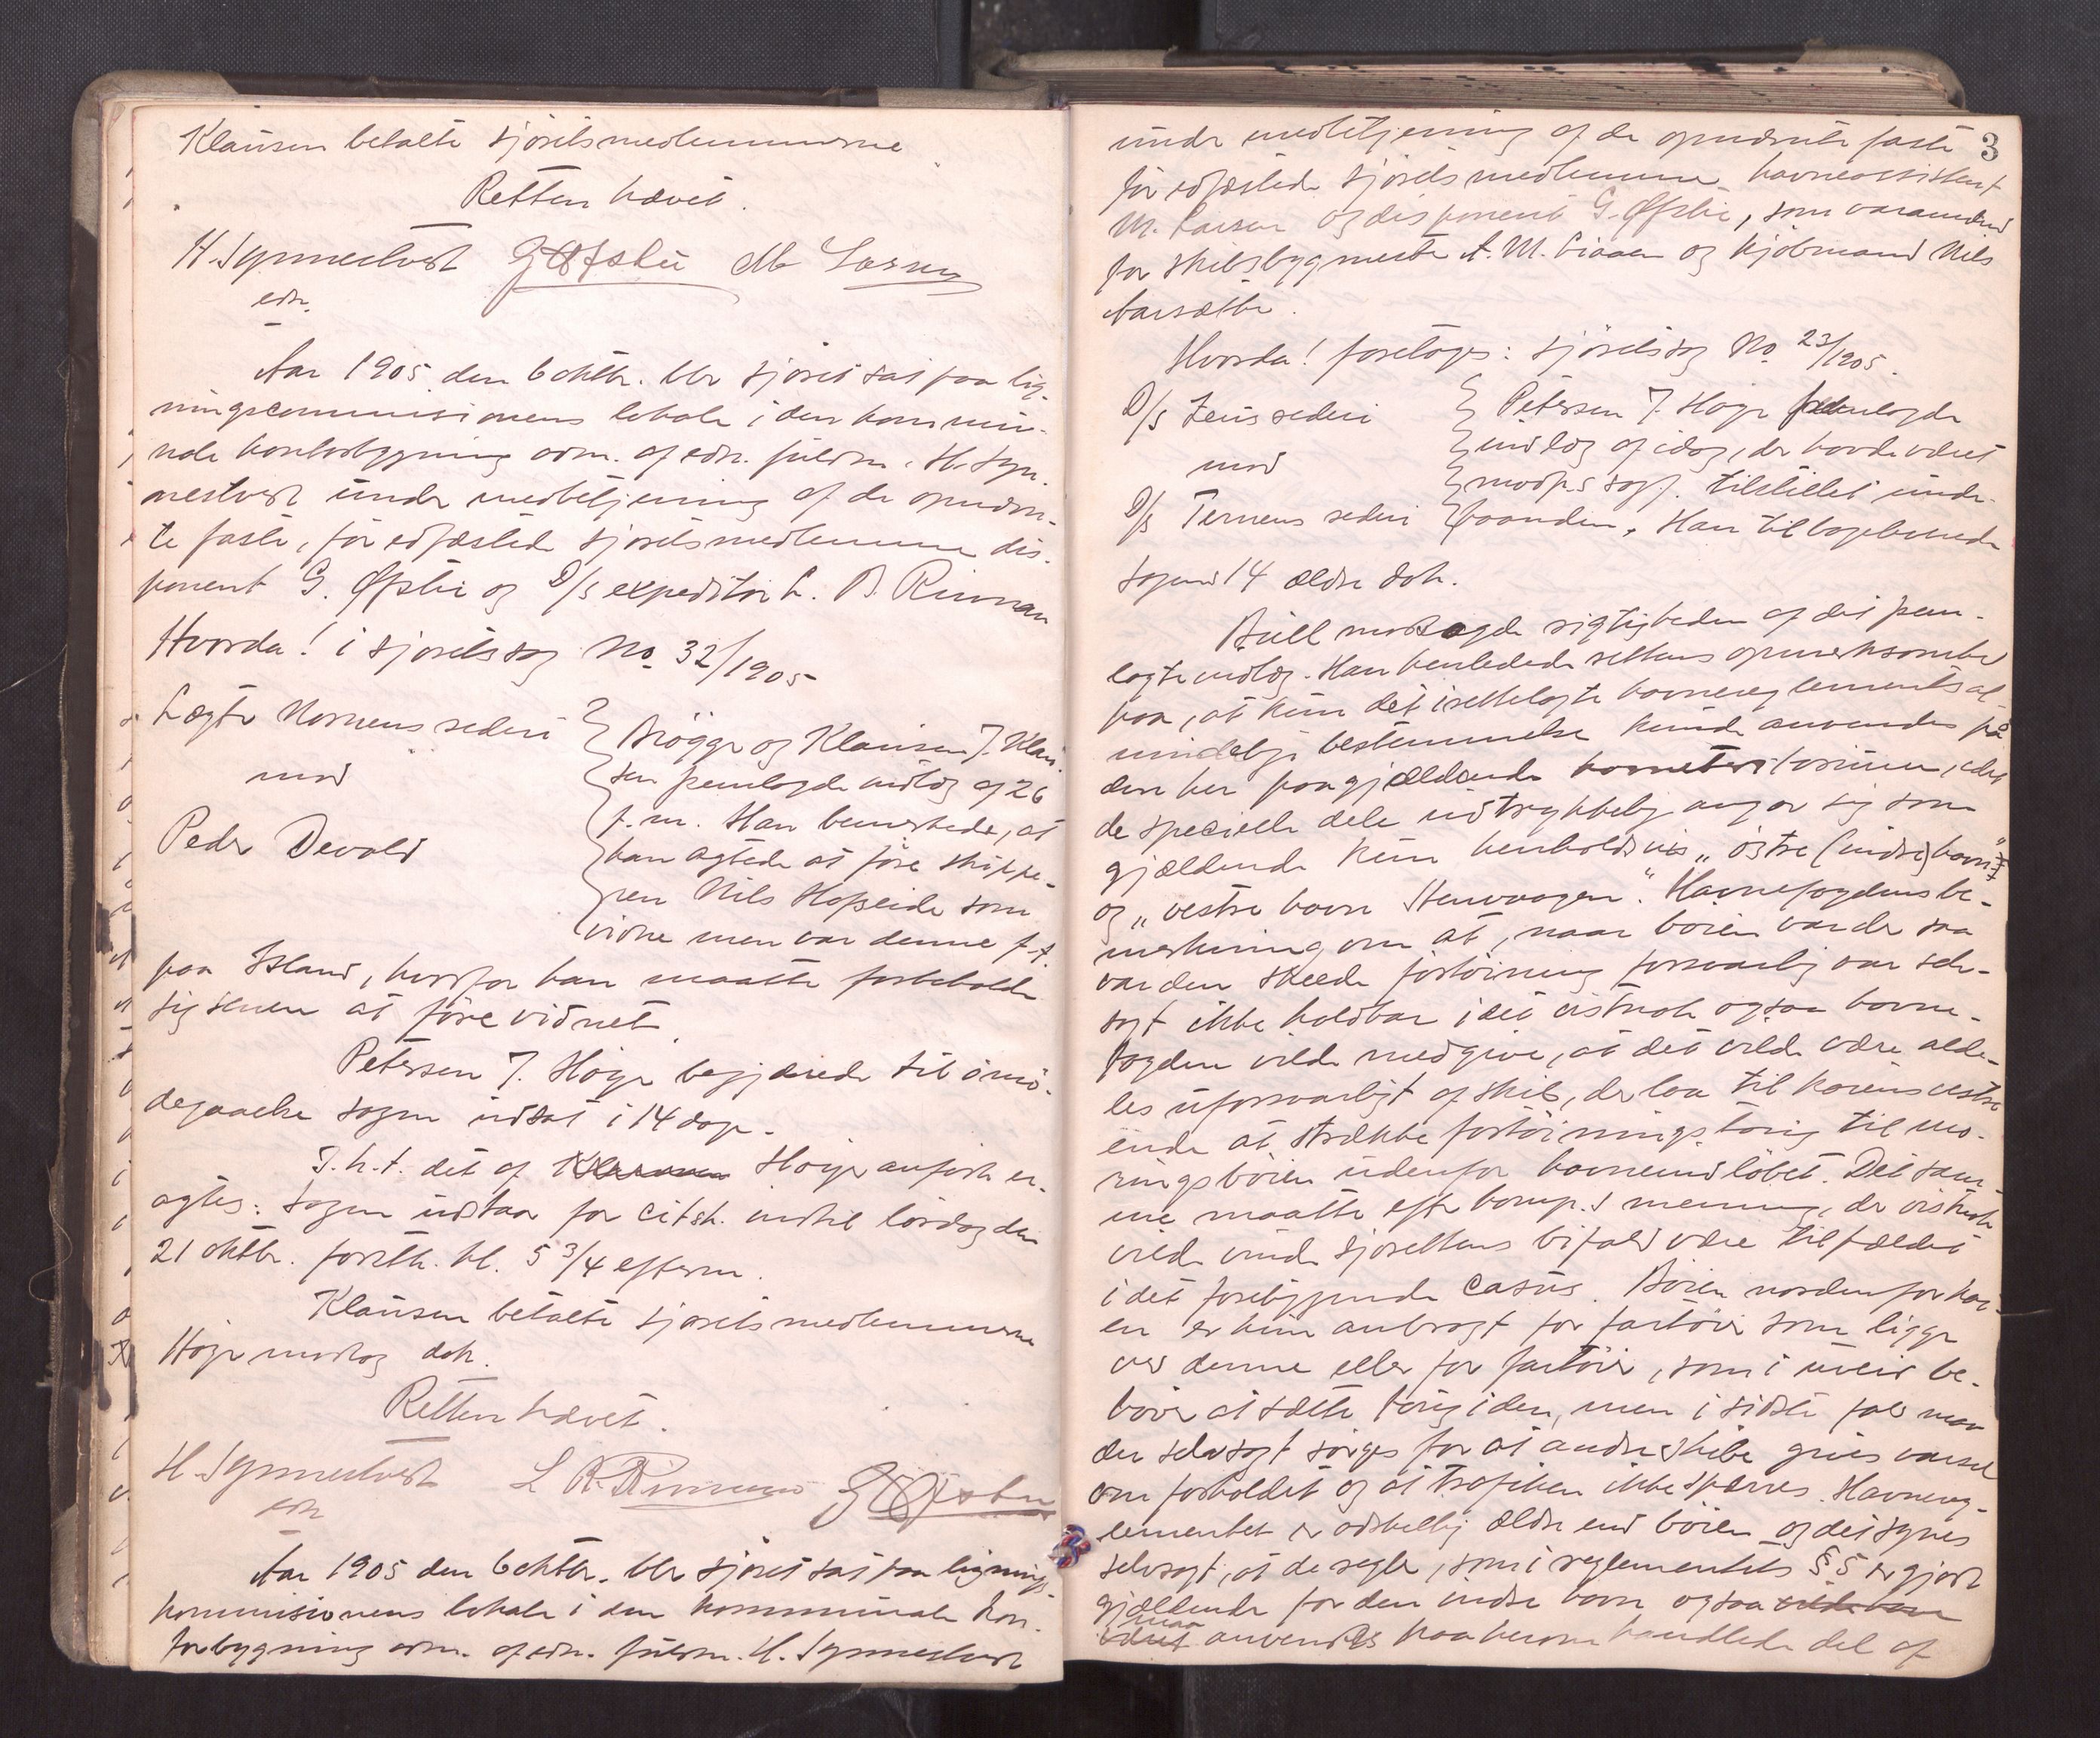 Klausen betalte sjøretsmedlemmerne
Retten hævet.
H. Synnestvedt G Øfsthi M Larsen
edn.
Aar 1905 den 6 oktbr. blev sjøret sat paa lig-
ningscommisionens lokale i den kommu-
nale kontorbygning adm. af edn. fuldm. H. Syn-
nestvedt under medbetjening af de opnævn-
te faste, før edfæstede sjøretsmedlemmer dis-
ponent G. Øfsthi og D/S expeditør L. B. Rinnan
Hvorda! i sjøretssag No 32/1905
Lægter Nornens rederi
mod
Peder Devold
Brøgger og Klausen J. Klau-
sen fremlagde indlæg af 26
f.m. Han bemerkede, at
han agtede at føre skippe-
ren Nils Hopseide som
vidne men var denne f.t.
paa Island, hvorfor han maatte forbeholde
sig senere at føre vidnet.
Petersen J. Høye begjærede til imø-
degaaelse sagen udsat i 14 dage.
I. h. t. det af Høye anførte er-
agtes: Sagen udstaar for citsh. indtil lørdag den
21 oktbr. førstk. kl. 5 3/4 efterm.
Klausen betalte sjøretsmedlemmerne
Høye modtog dok.
Retten hævet.
H. Synnestvedt L B. Rinnan G Øfsthi
edn
Aar 1905 den 6 oktbr. blev sjøret sat paa lignings-
kommisionens lokale i den kommunale kon-
torbygning adm. af edn. fuldm. H. Synnestvedt
3
under medbetjening af de opnævnte faste
før edfæstede sjøretsmedlemmer havneassistent
M. Larsen og disponent G. Øfsthi, som varamænd
for skibsbygmester A. M. Liaaen og kjøbmand Nils
Aarsæther.
Hvorda! foretoges: sjøretssag No 23/1905.
D/S Zeus rederi
mod
D/S Ternens rederi
Petersen J. Høye fremlagde
indlæg af idag, der havde været
modps sagf. tilstillet under-
haanden. Han tilbageleverede
sagens 14 ældre dok.
Bull modsagde rigtigheden af det frem-
lagte indlæg. Han henledede rettens opmerksomhed
paa, at kun det iretttelagte havnereglements al-
mindelige bestemmelser kunde anvendes på
den her paagjældende havneterritorium, idet
de specielle dele udtrykkelig angav sig som
gjældende kun henholdsvis „østre (indre) havn“
og „vestre havn Stenvaagen“. Havnefogdens be-
merkning om at, naar bøien var der saa
var den skeede fortøining forsvarlig var selv-
sagt ikke holdbar idet vistnok ogsaa havne-
fogden vilde medgive, at det vilde være alde-
les uforsvarligt af skib, der laa til kaiens vestre
ende at strække fortøiningstoug til mo-
ringsbøien udenfor havneindløbet. Det sam-
me maatte efter komp.s mening, der vistnok
vilde vinde sjørettens bifald være tilfældet
i det foreliggende casus. Bøien nordenfor kai-
en er kun anbragt for fartøier som ligger
ved denne eller for fartøier, som i uveir be-
høver at sætte toug i den, men i sidste fald maa
der selvsagt sørges for at andre skibe gives varsel
om forholdet og at trafiken ikke spærres. Havnereg-
lementet er adskillig ældre end bøien og det synes
selvsagt, at de regler, som i reglementets § 5 er gjort
gjældende for den indre havn ogsaa
maa anvendes paa herom handlede del af